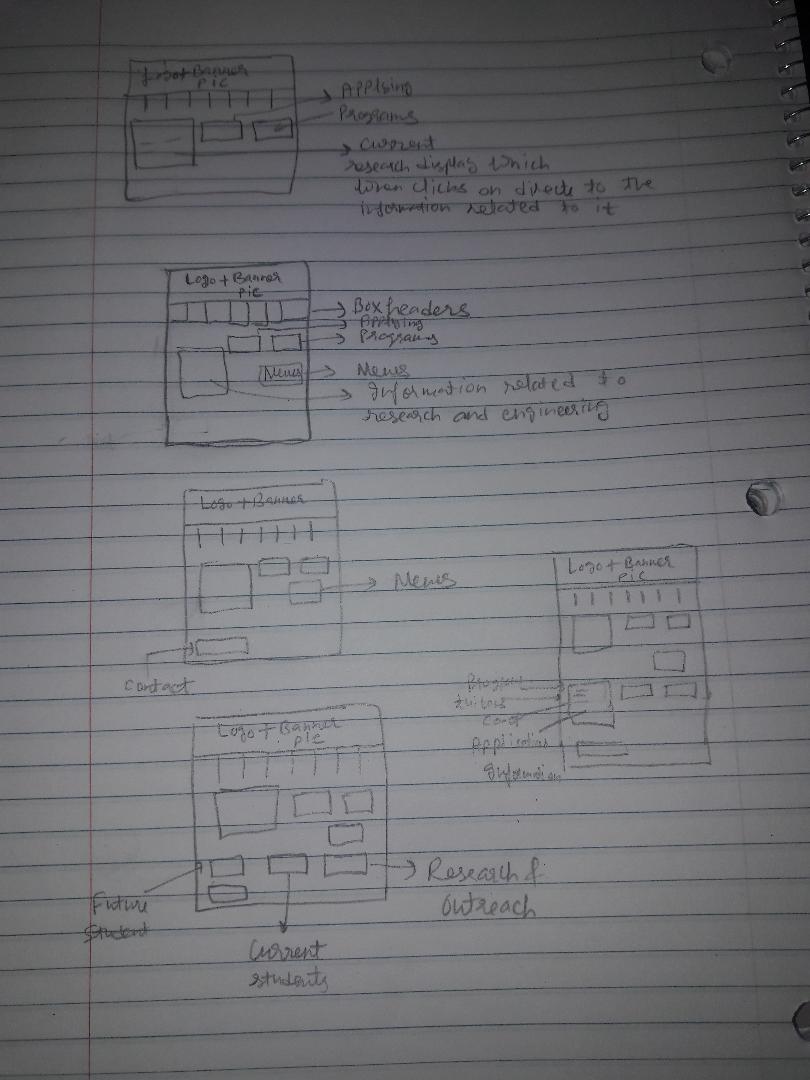 Logo + Banner
pic
Applying
Programs
Current
research display which
when clicks on directs to the
information related to it
Logo + Banner
pic
Box headers
Applying
Programs
News
News
Information related to
research and engineering
Logo + Banner
News
Contact
Logo + Banner
pic
Program
Application
Information
Logo + Banner
pic
Future
Student
Research &
Outreach
Current
students